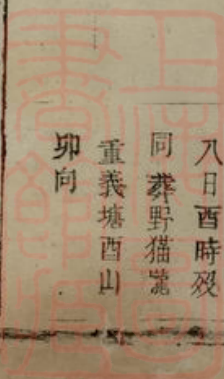 八日酉時歿
同葬野猫
重義塘酉山
卯向